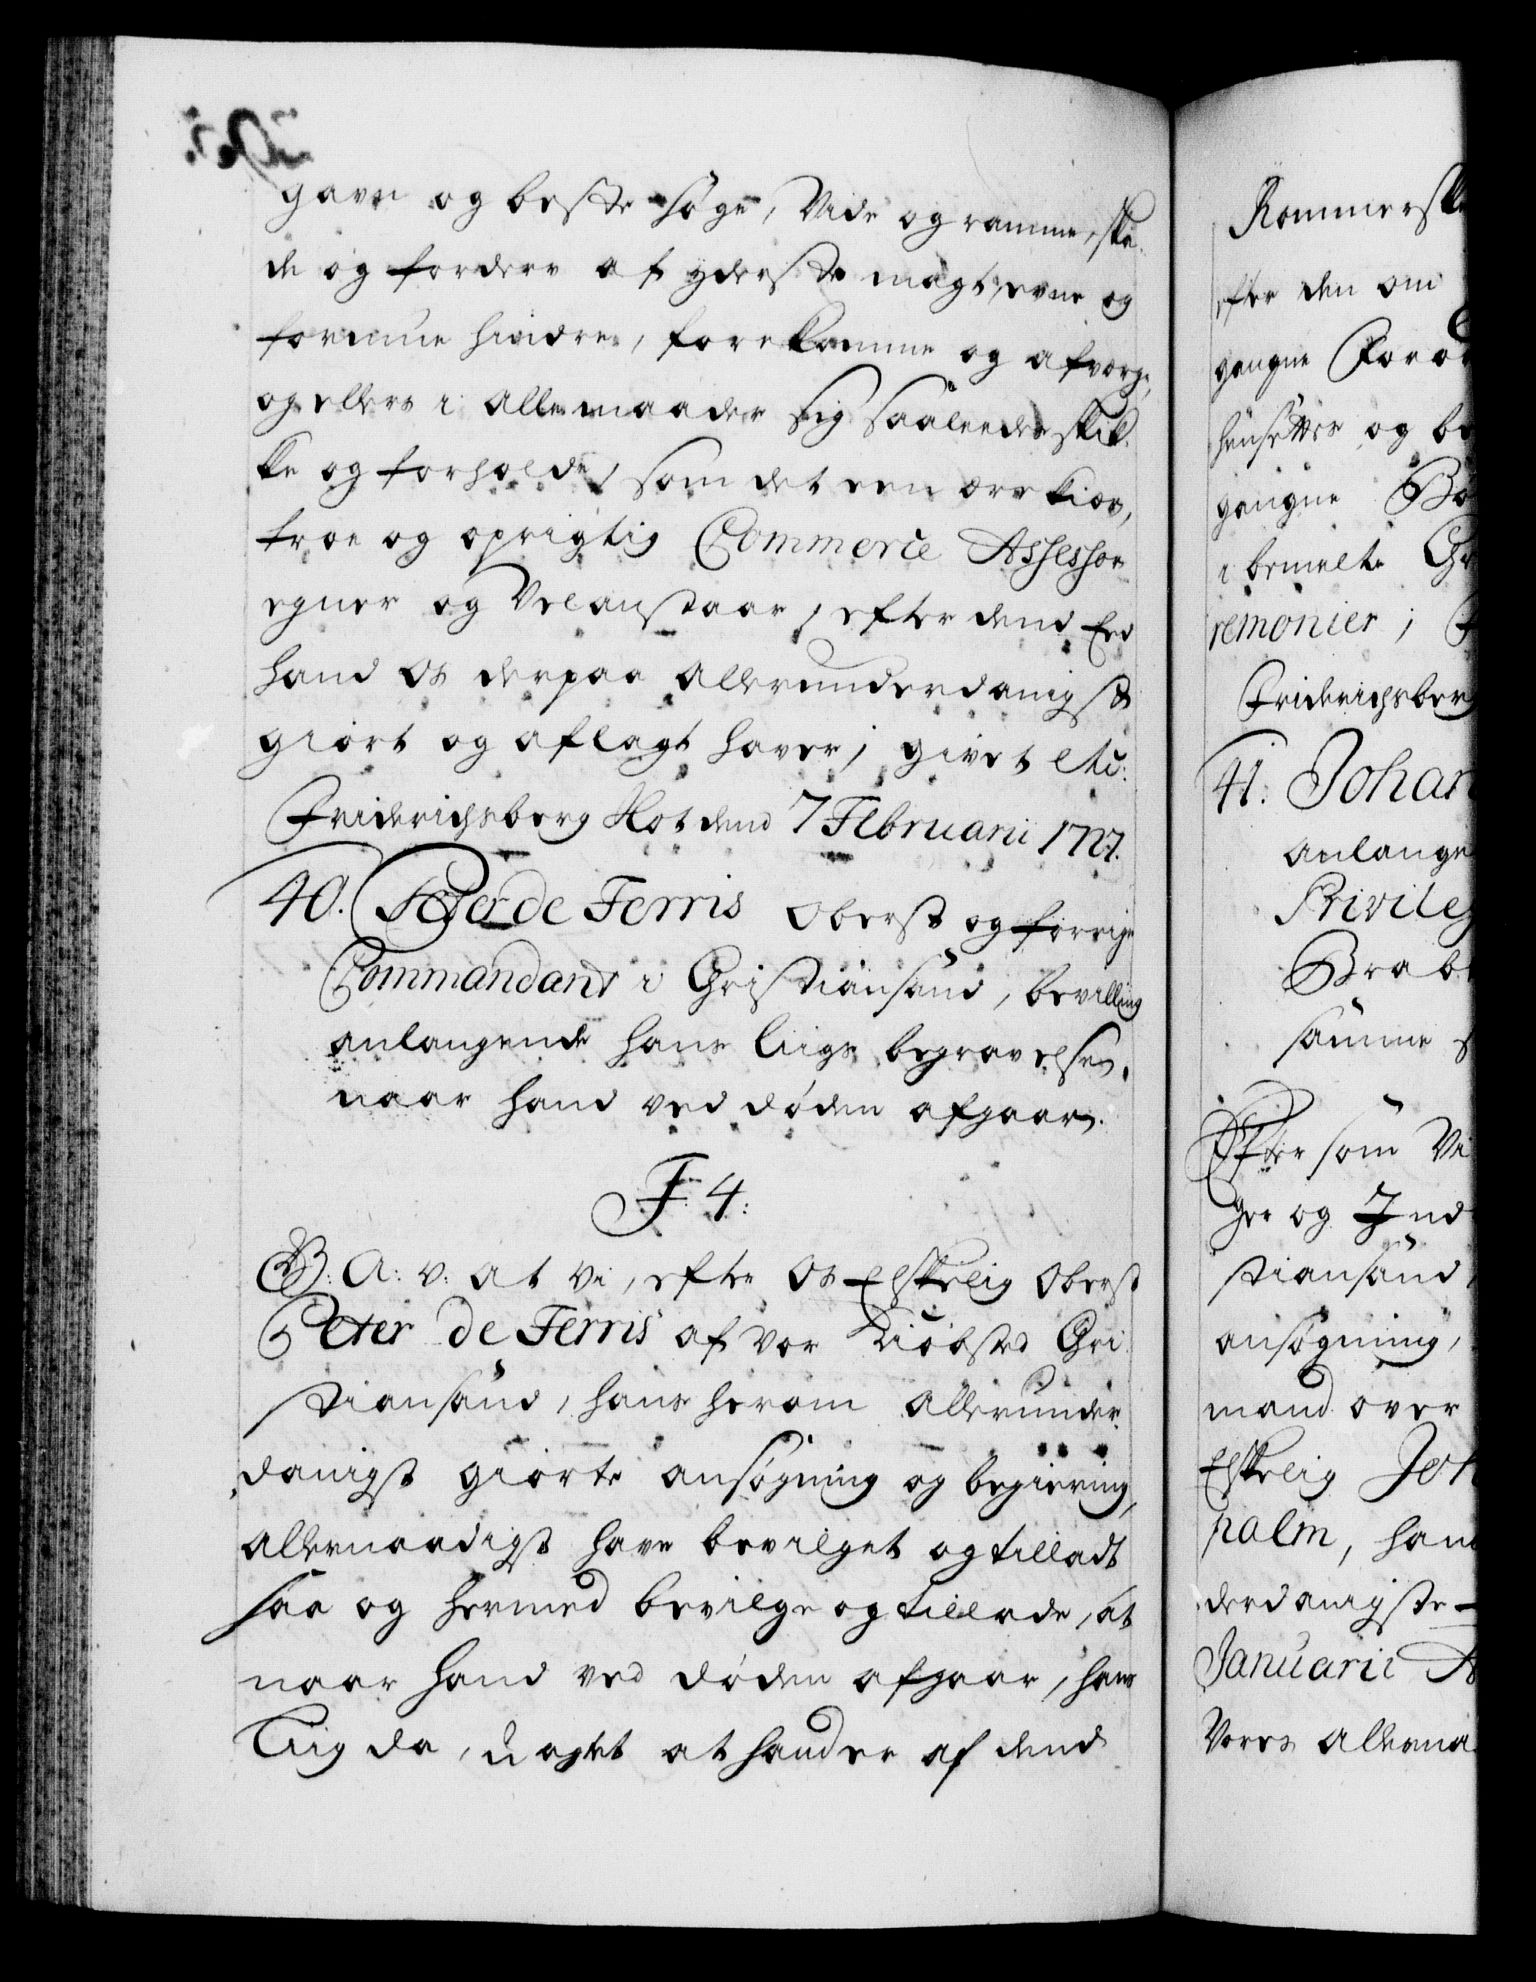 gavn og beste søge, Vide og ramme, ska-
de og forderv af yderste magt, evne og
formue hindre, forekomme og afverge,
og ellers i alle maader sig saaleedes skik-
ke og forholde, som det een ære kiær,
troe og oprigtig Commerce Assessor
egner og Velanstaar, efter dend Eed
hand os derpaa allerunderdanigst
giort og aflagt haver; givet etc:
Friderichsberg Slot dend 7 Februarii 1727.
40. Peter de Ferris Oberst og forrige
Commandant i Christiansand, bevilling
anlangende hans liigs begravelse,
naar hand ved døden afgaar.
F: 4:
G: A: v: at vi, efter Os Elskelig Oberst
Peter de Ferris af vor Kiøbsted Chri-
stiansand, hans herom allerunder-
danigst giorte ansøgning og begiering,
allernaadigst have bevilget og tilladt
saa og hermed bevilge og tillade, at
naar hand ved døden afgaar, hans
Liig da, uagtet at hand er af dend
Kommerske
efter den om
gangne Foror
hensættes og be
gangne
i bemelte
remonier;
Friderichsberg
41. Johan
anlange
Privileg
samme
Eftersom Vi
ger og Ind
stiansand
ansøgning,
mand over
Elskelig Joh
palm, han
derdanigste
Januarii
Vores allerna